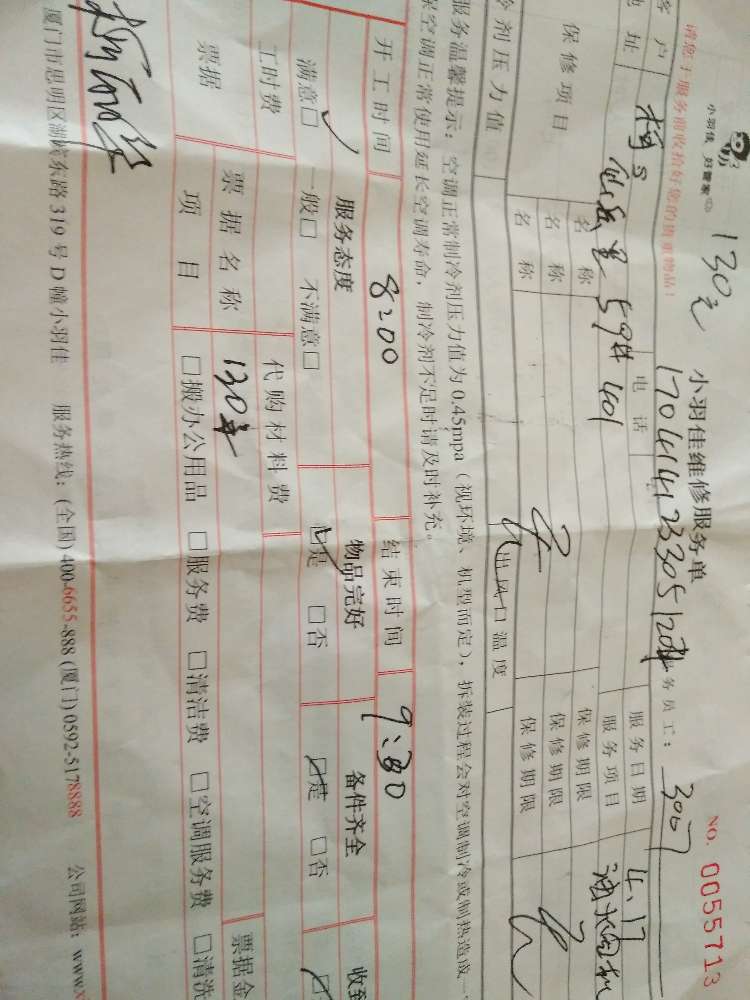 小羽佳，妇管家
130元
小羽佳维修服务单
NO. 0055713
请您于服务前收拾好您的贵重物品！
务员工：
3007
客户
电话
17041442330512
服务日期
4.17
地址
59# 401
服务项目
油烟机
保修项目
名称
保修期限
名称
保修期限
名称
保修期限
冷剂压力值
出风口温度
服务温馨提示：空调正常制冷剂压力值为0.45mpa（视环境、机型而定），拆装过程会对空调制冷或制热造成一
保空调正常使用延长空调寿命，制冷剂不足时请及时补充。
开工时间
8:00
结束时间
9:30
服务态度
物品完好
备件齐全
收到
满意□ 一般□ 不满意□
□是 □否
□是 □否
工时费
代购材料费
130元
票据
票据名称
票据金
项目
□搬办公用品 □服务费 □清洁费 □空调服务费 □清洗
厦门市思明区湖滨东路319号D幢小羽佳 服务热线：(全国)400-6655-888 (厦门)0592-5178888 公司网站：www.x